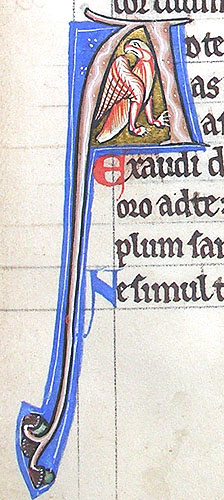 A
dte
as
Exaudi d
oro ad te:
plum san
Ne simul t